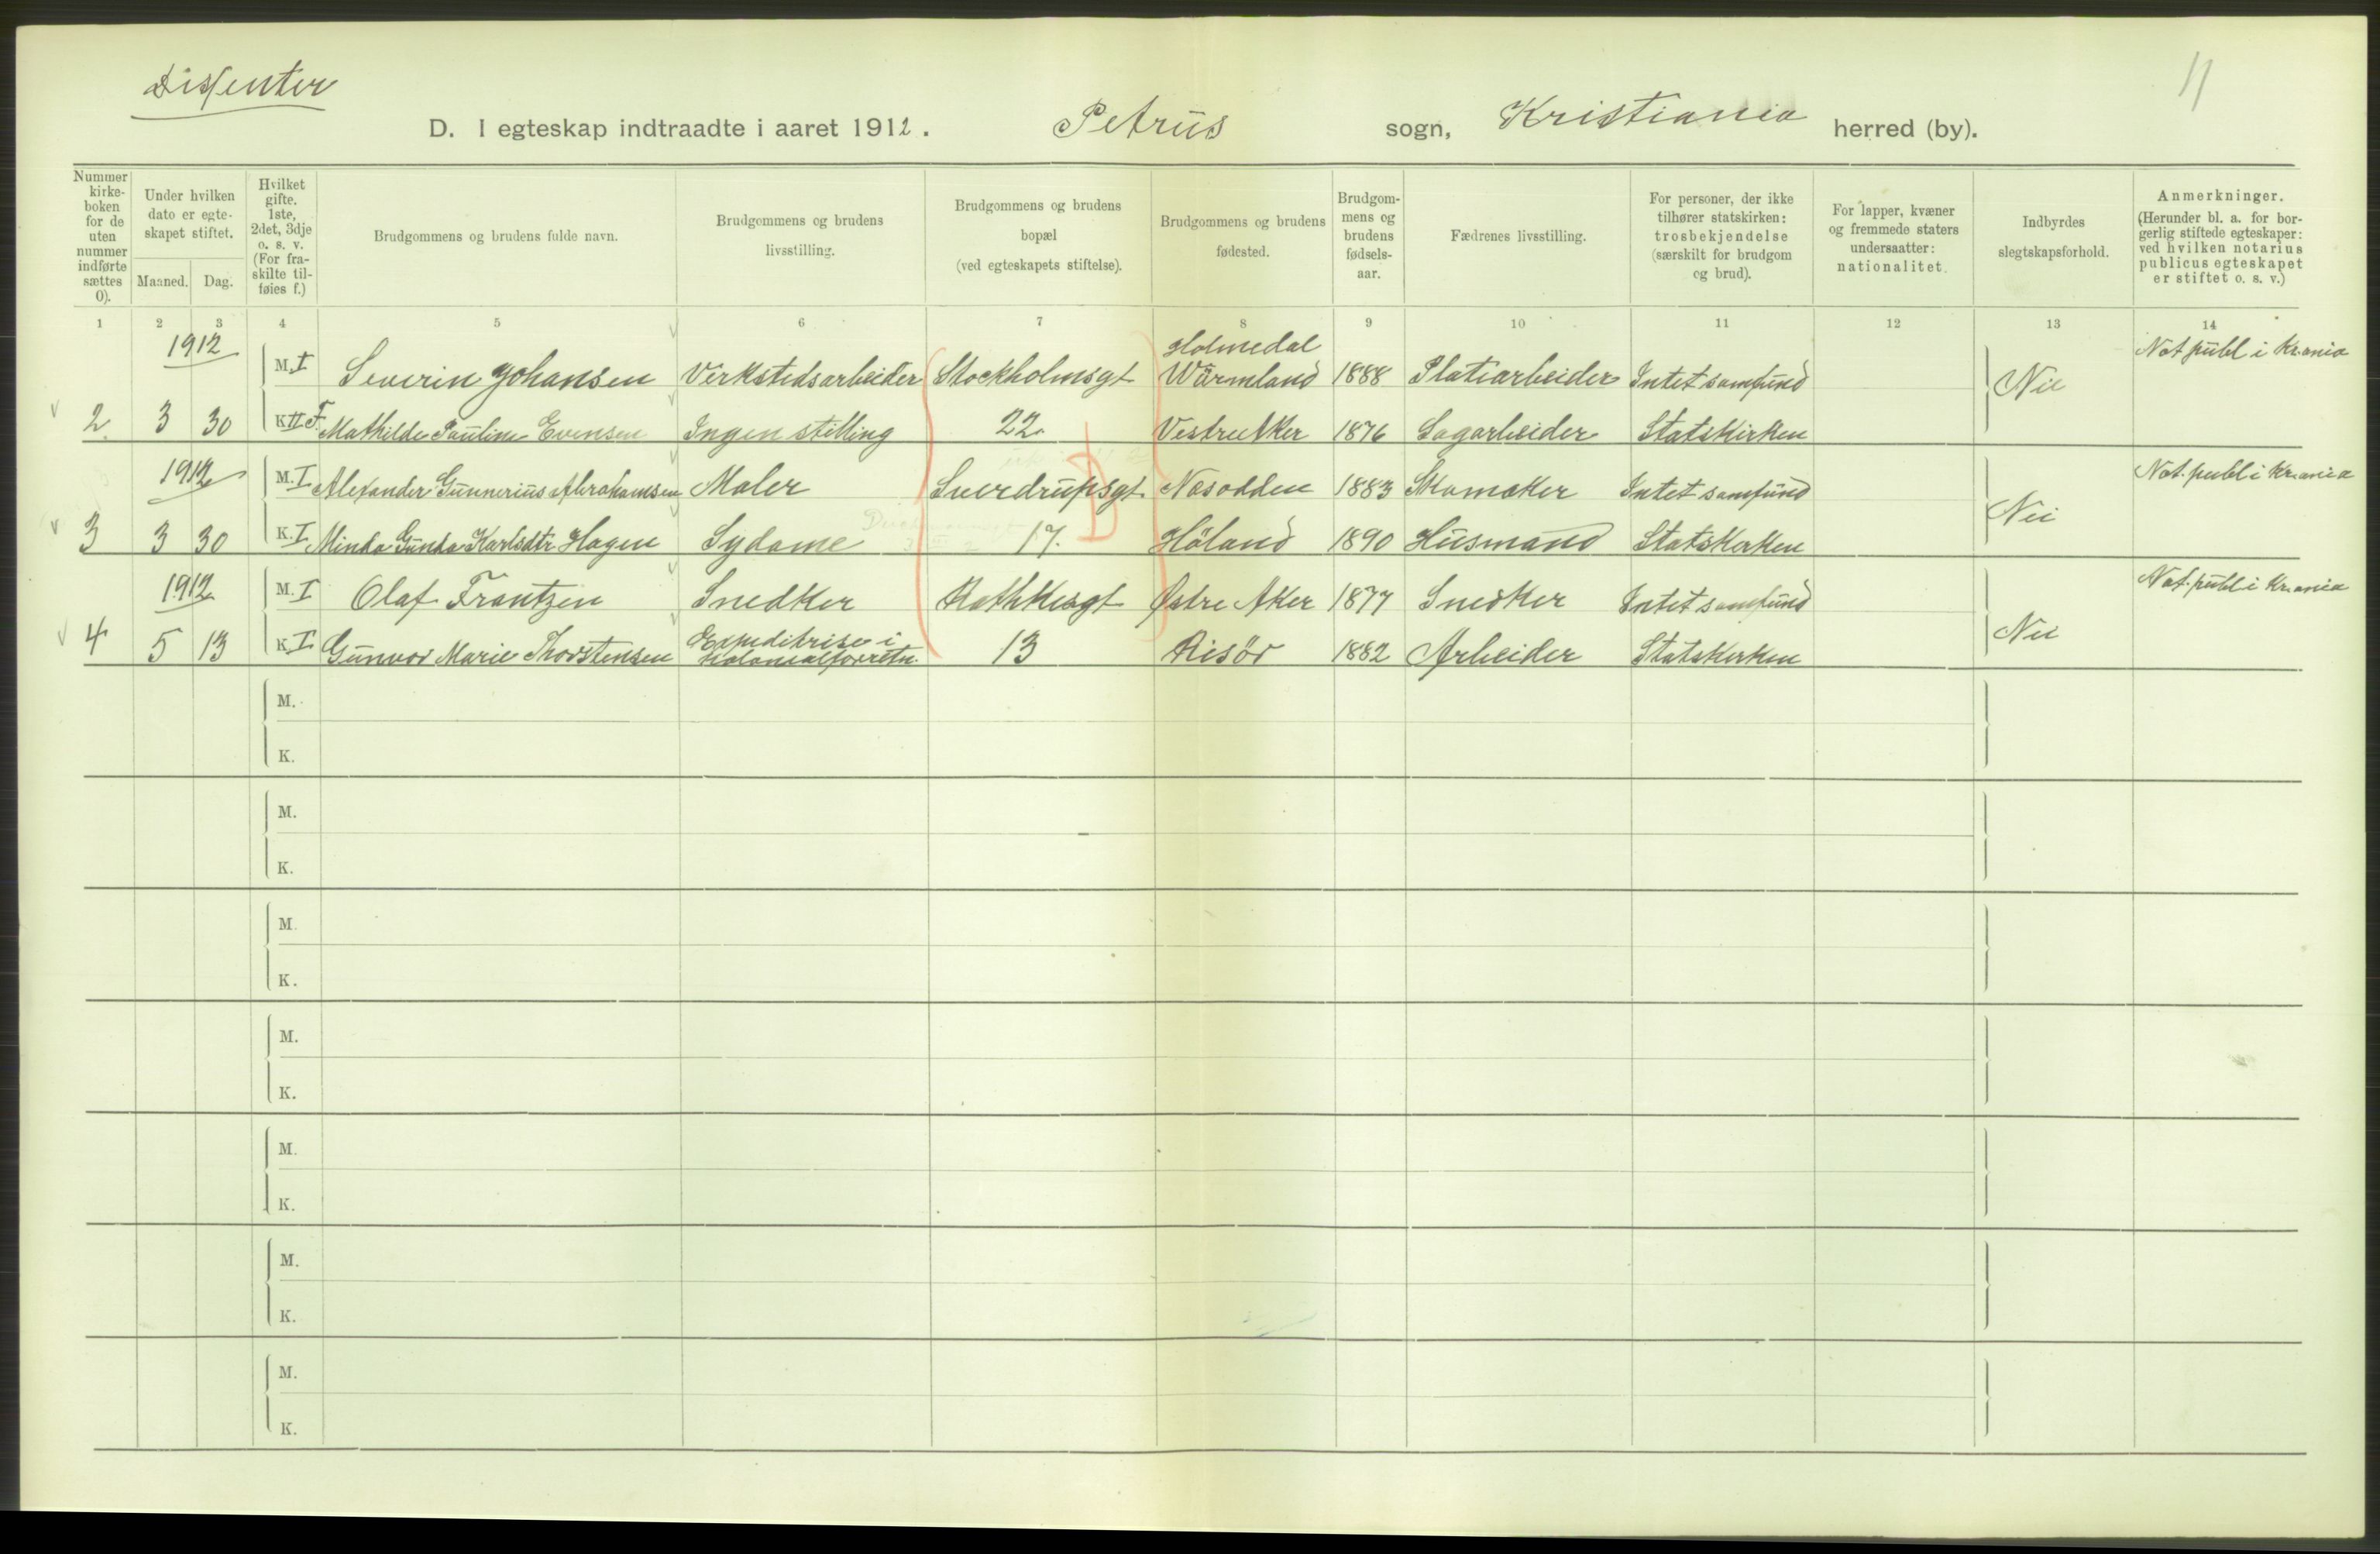 Dissenter
11
D. I egteskap indtraadte i aaret 1912. Petrus sogn, Kristiania herred (by).
Nummer kirke-boken for de uten nummer indførte sættes 0).
Under hvilken dato er egte-skapet stiftet.
Maaned. Dag.
Hvilket gifte. 1ste, 2det, 3dje o. s. v. (For fra-skilte til-føies f.)
Brudgommens og brudens fulde navn.
Brudgommens og brudens livsstilling.
Brudgommens og brudens bopæl (ved egteskapets stiftelse).
Brudgommens og brudens fødested.
Brudgom-mens og brudens fødsels-aar.
Fædrenes livsstilling.
For personer, der ikke tilhører statskirken: trosbekjendelse (særskilt for brudgom og brud).
For lapper, kvæner og fremmede staters undersaatter: nationalitet.
Indbyrdes slegtskapsforhold.
Anmerkninger. (Herunder bl. a. for bor-gerlig stiftede egteskaper: ved hvilken notarius publicus egteskapet er stiftet o. s. v.)
1 2 3 4 5 6 7 8 9 10 11 12 13 14
1912 M. I Severin Johansen Verkstedsarbeider Stockholmsgt Holmedal Wärmland 1888 Platearbeider Intet samfund Nei Not publ i Kr.ania
2 3 30 K. II F. Mathilde Pauline Evensen Ingen stilling 22. Vestre Aker 1876 Sagarbeider Statskirken
1912 M. I Alexander Gunnerius Abrahamsen Maler Sverdrupsgt. Nesodden 1883 Skomaker Intet samfund Nei Not. publ i Kr.ania
3 3 30 K. I Minda Gunda Karlsdtr Hagen Sydame 17. Höland 1890 Husmand Statskirken
1912 M. I Olaf Frantzen Snedker Rathkesgt Østre Aker 1877 Snedker Intet samfund Nei Not. publ i Kr.ania
4 5 13 K. I Gunvor Marie Thorstensen Expeditrise i Kolonialforretn. 13 Risör 1882 Arbeider Statskirken
M.
K.
M.
K.
M.
K.
M.
K.
M.
K.
M.
K.
M.
K.